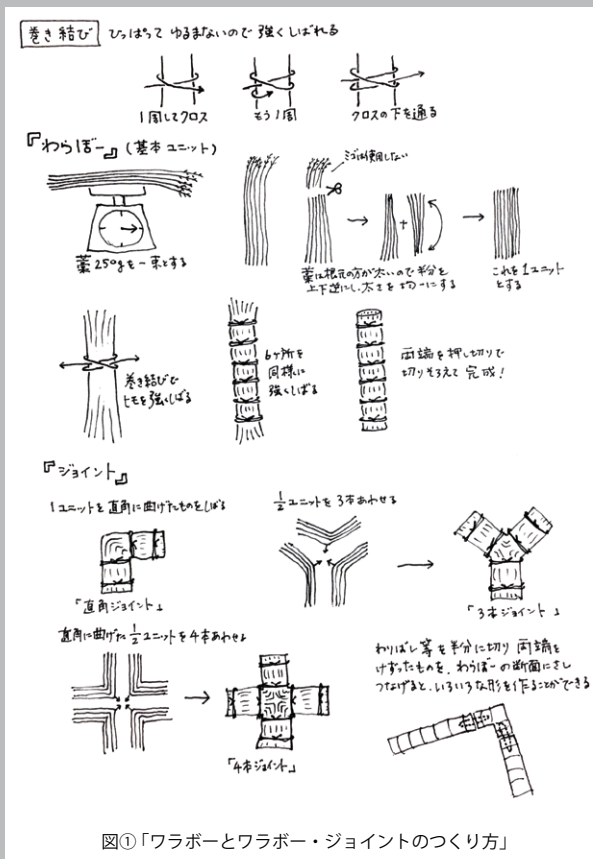 巻き結び ひっぱって ゆるまないので 強くしばれる
1周してクロス
もう1周
クロスの下を通る
『わらぼー』(基本ユニット)
ミゴは使用しない
藁250gを一束とする
藁は根元の方が太いので半分を
上下逆にし、太さを均一にする
これを1ユニット
とする
巻き結びで
ヒモを強くしばる
6ヶ所を
同様に
強くしばる
両端を押し切りで
切りそろえて 完成!
『ジョイント』
1ユニットを直角に曲げたものをしばる
「直角ジョイント」
1/2ユニットを3本あわせる
「3本ジョイント」
直角に曲げた1/2ユニットを4本あわせる
「4本ジョイント」
わりばし等を半分に切り 両端を
けずったものを、わらぼーの断面にさし
つなげると、いろいろな形を作ることができる
図①「ワラボーとワラボー・ジョイントのつくり方」